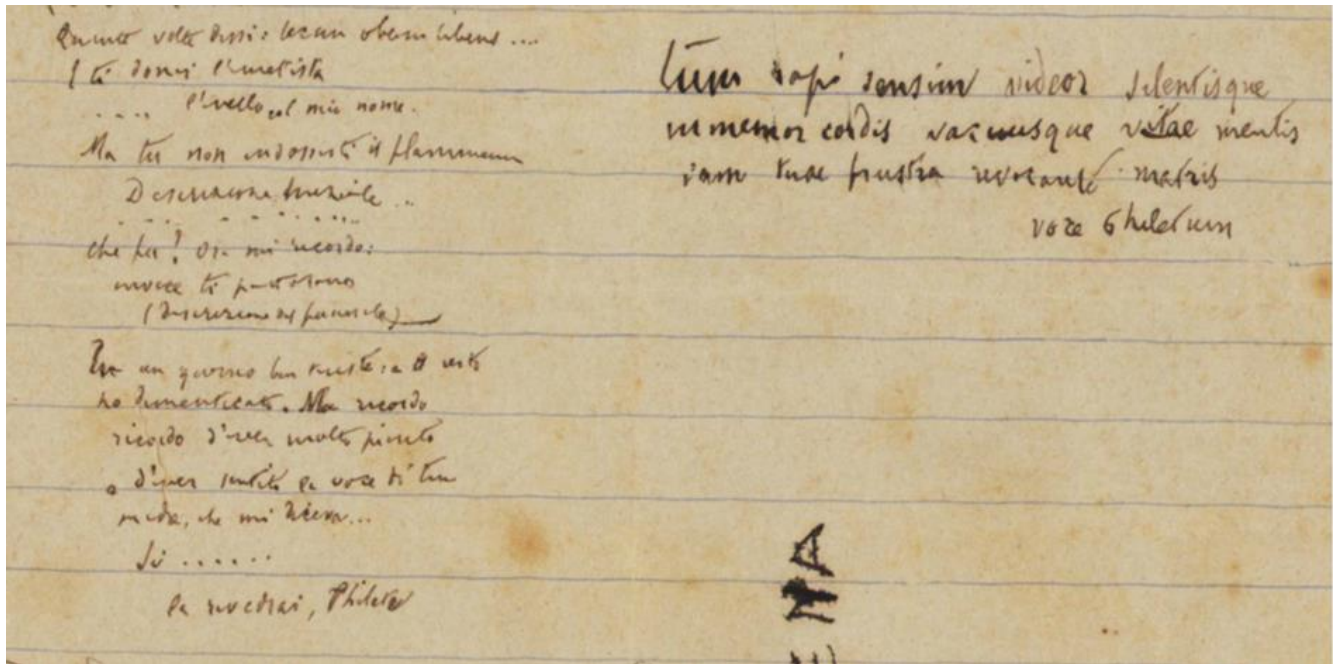 Quante volte dissi: tecum obeam lubens ...
E ti donai l'ametista
.... l'anello col mio nome.
Ma tu non indossasti il flammeum
Descrizione nuziale ..
che fu? Or mi ricordo:
invece ti portarono
(Descrizione del funerale)
un giorno ben triste: e il resto
ho dimenticato. Ma ricordo
ricordo d'aver molto pianto
e d'aver sentito la voce di tua
madre, che mi diceva...
Sì ......
la rivedrai, Philete
Tum rapi sensim videor silentisque
immemor cordis vacuusque vitae mentis
iam tuae frustra revocante matris
voce Philetum
NA